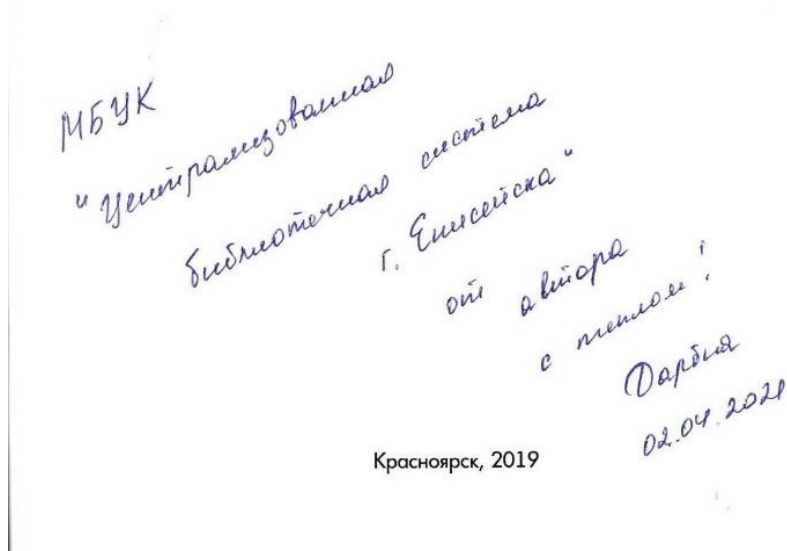 МБУК
"Централизованная
библиотечная система
г. Енисейска"
от автора
с теплом!
02.04.2021
Красноярск, 2019